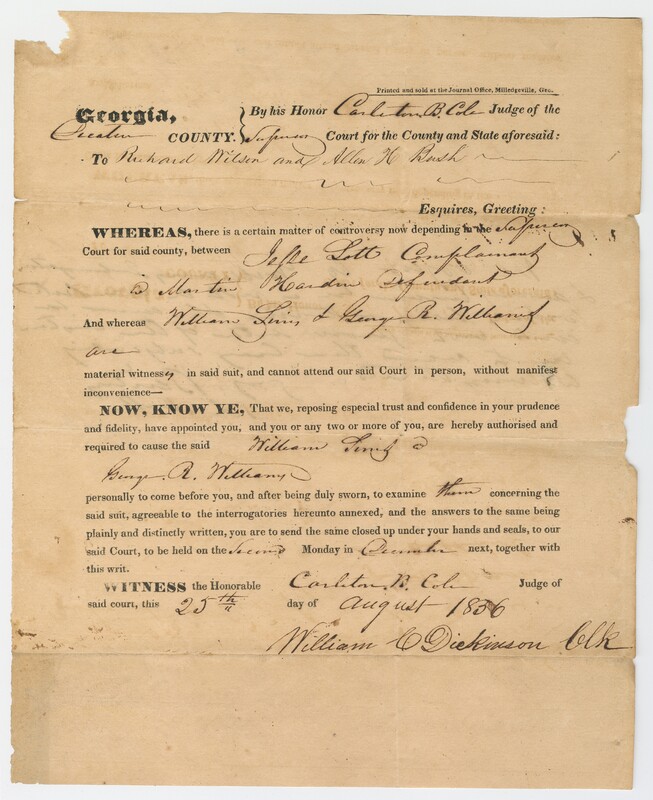 Printed and sold at the Journal Office, Milledgeville, Geo.
Georgia, } By his Honor Carleton B. Cole Judge of the
Decatur COUNTY. } Superior Court for the County and State aforesaid:
To Richard Wilson and Allen H Bush
Esquires, Greeting:
WHEREAS, there is a certain matter of controversy now depending in the Superior
Court for said county, between Jesse Lott Complainant
& Martin Hardin Defendant
And whereas William Sims & George R. Williams
are
material witness in said suit, and cannot attend our said Court in person, without manifest
inconvenience—
NOW, KNOW YE, That we, reposing especial trust and confidence in your prudence
and fidelity, have appointed you, and you or any two or more of you, are hereby authorised and
required to cause the said William Sims &
George R. Williams
personally to come before you, and after being duly sworn, to examine them concerning the
said suit, agreeable to the interrogatories hereunto annexed, and the answers to the same being
plainly and distinctly written, you are to send the same closed up under your hands and seals, to our
said Court, to be held on the Second Monday in December next, together with
this writ.
WITNESS the Honorable Carleton B. Cole Judge of
said court, this 25th day of August 1836
William C Dickinson Clk